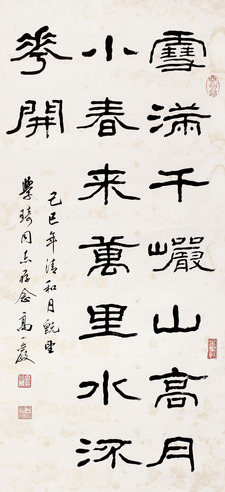 雪滿千巖山高月
小春来萬里水流
華開
己巳年清和月既望
學琦同志存念高